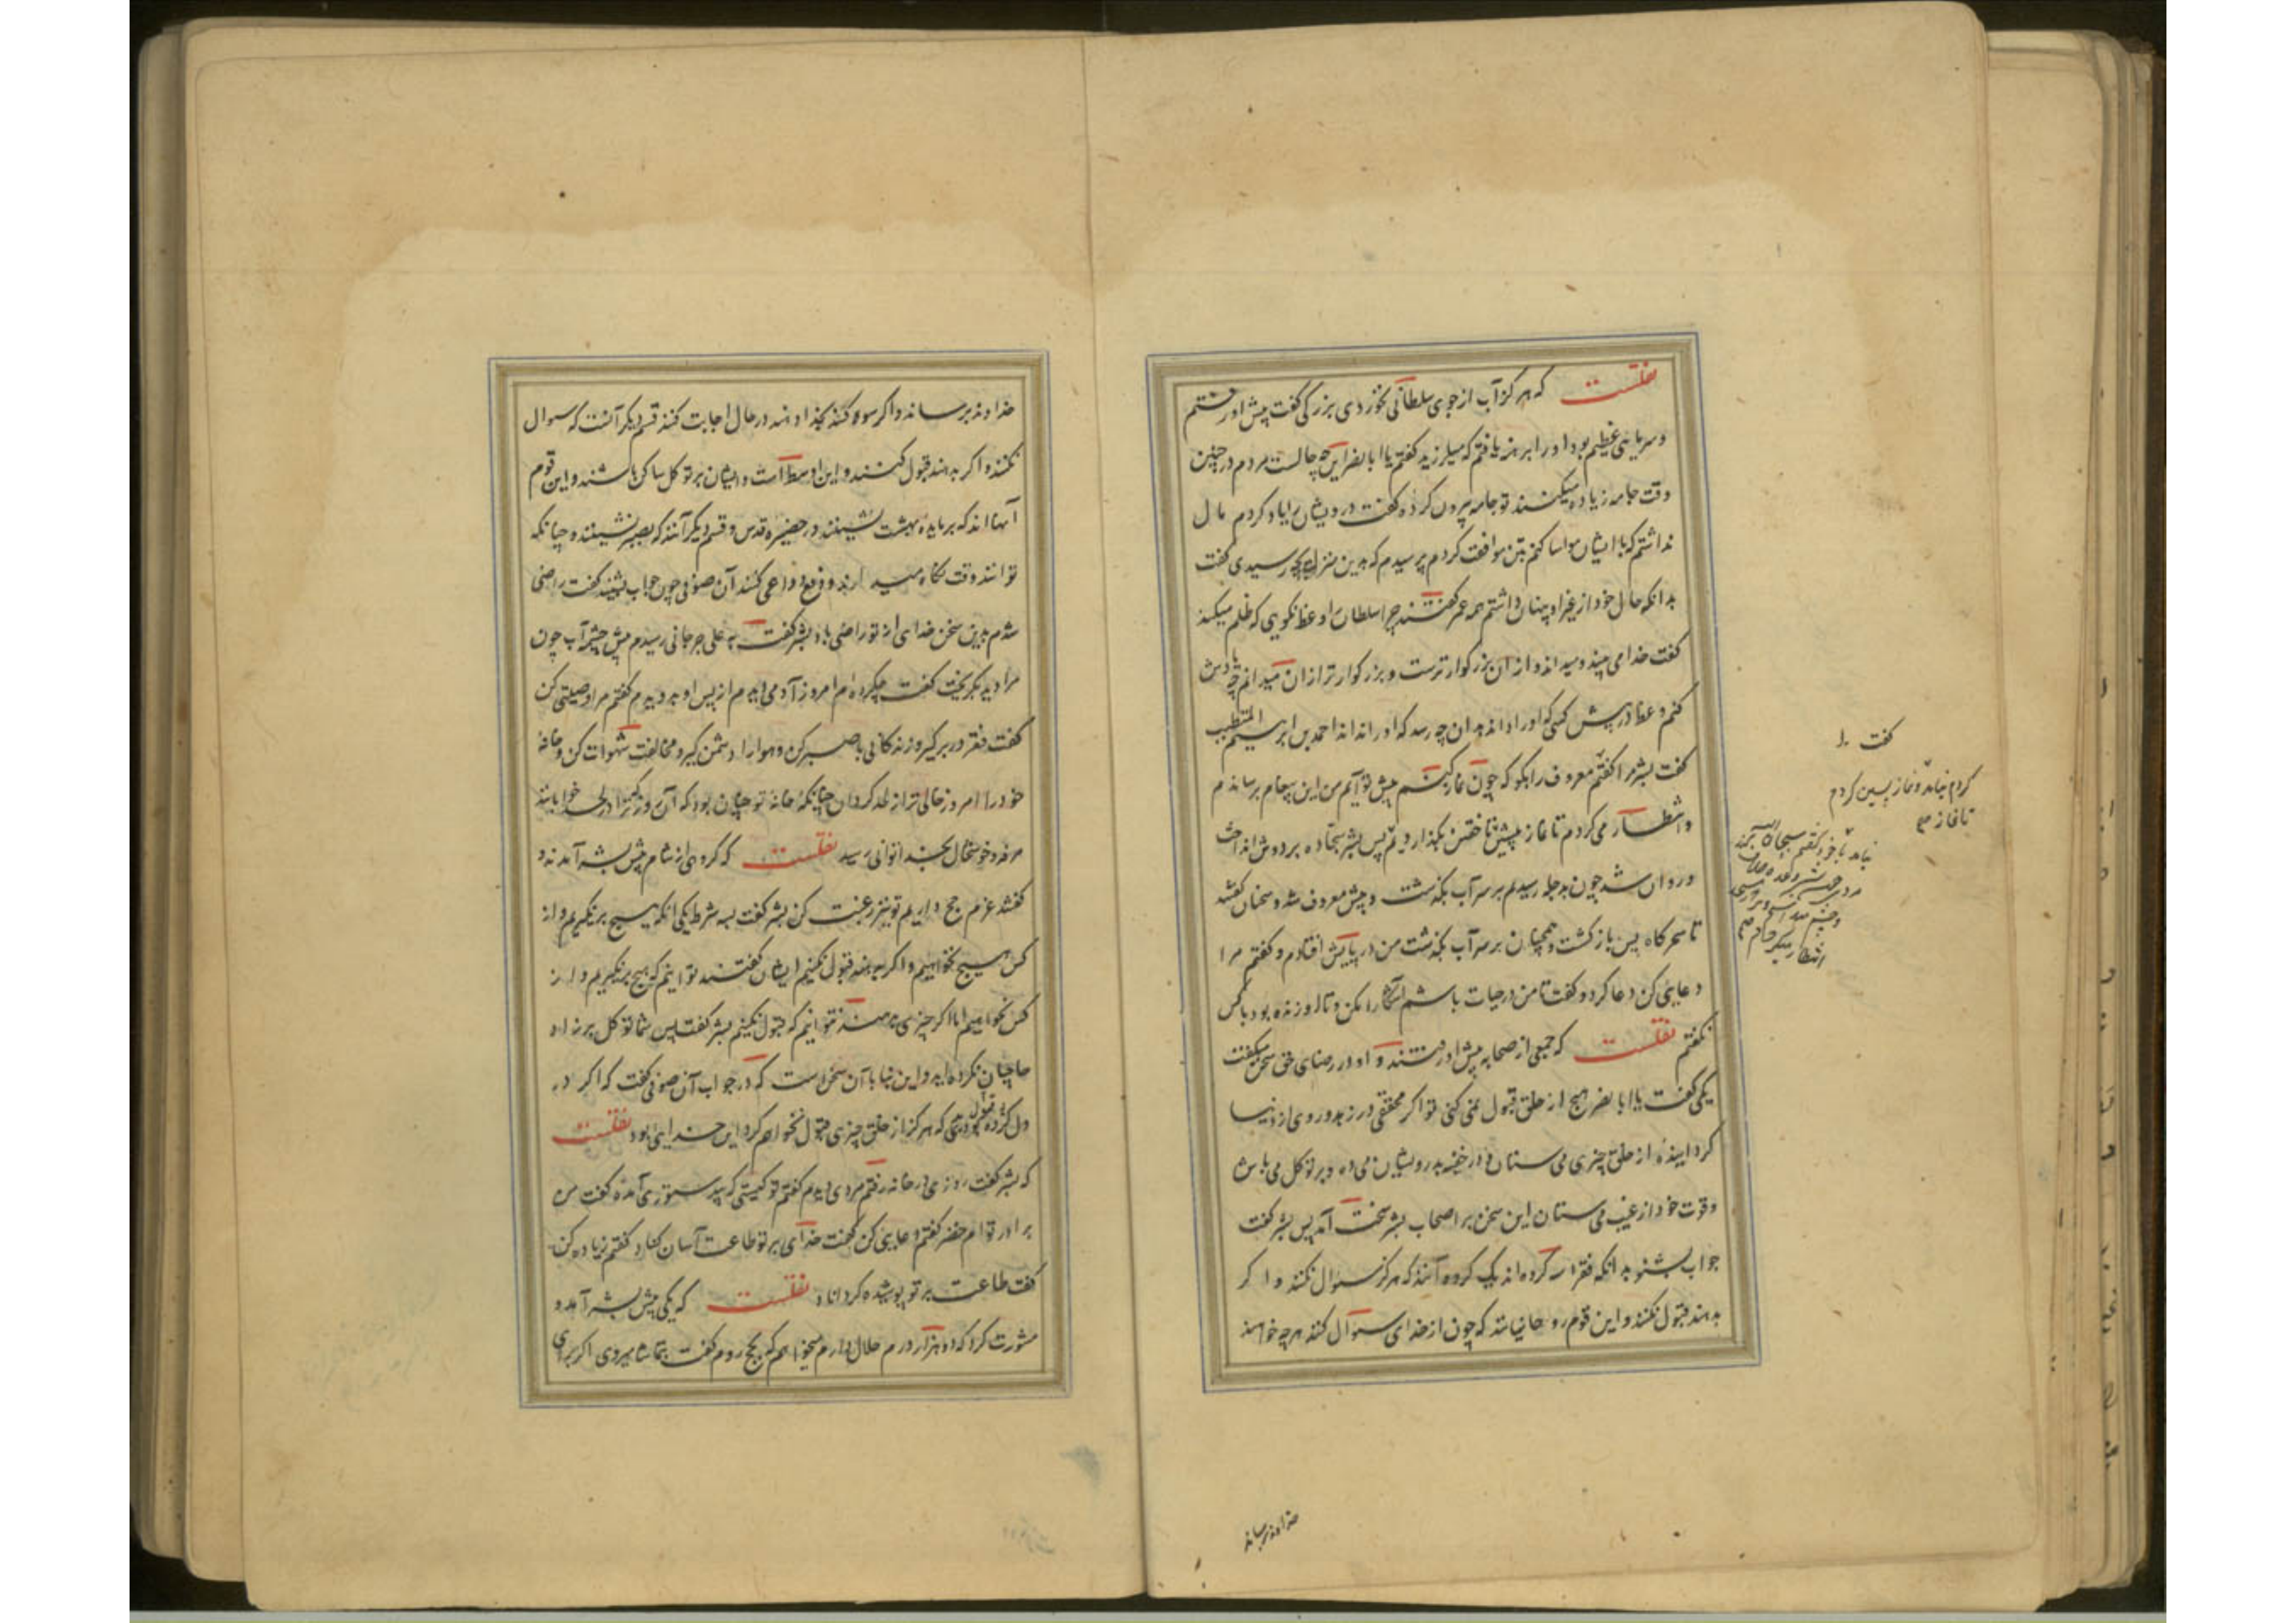 نقلست که هرگز آب از جوی سلطانی نخوردی بزرگی گفت پیش او رفتم
و سرمایی عظیم بود او را برهنه یافتم که میلرزید گفتم یا ابا نصر این چه حالست مردم در چنین
وقت جامه زیاده میکنند تو جامه بیرون کرده گفت درویشان را یاد کردم مال
نداشتم که با ایشان مواسا کنم بتن موافقت کردم پرسیدم که بدین منزله بچه رسیدی گفت
بدانکه حال خود از غیر او پنهان داشتم همه عمر گفتند چرا سلطان را وعظ نگویی که ظلم میکند
گفت خدا می بیند و میداند و از آن بزرگوارترست و بزرگوارتر از آن میدانم
کنم وعظ در پیش کسی که او را داند بدان چه رسد که او را نداند احمد بن ابراهیم المتطبب
گفت بشر مرا گفت معروف را بگو که چون نماز کنم پیش تو آیم من این پیغام برساندم
و انتظار می کردم تا نماز پیشین تا خفتن بگذاردیم پس بشر سجاده بر دوش انداخت
و روان شد چون بدجله رسیدم بر سر آب بگذشت و پیش معروف شد و سخنان گفتند
تا سحرگاه پس بازگشت و همچنان بر سر آب بگذشت من در پایش افتادم و گفتم مرا
دعایی کن دعا کرد و گفت تا من در حیات باشم آشکارا مکن و تا او زنده بود با کس
نگفتم نقلست که جمعی از صحابه پیش او رفتند و او در رضای حق سخن میگفت
یکی گفت یا ابا نصر هیچ از خلق قبول نمی کنی تو اگر محققی در زهد و روی از دنیا
گردانیده از خلق چیزی می ستان و در خفیه بدرویشان می ده و بر توکل می باش
و قوت خود از غیب می ستان این سخن بر اصحاب بشر سخت آمد پس بشر گفت
جواب بشنو بدانکه فقرا سه گروه اند یک گروه آنند که هرگز سوال نکنند و اگر
بدهند قبول نکنند و این قوم روحانیانند که چون از خدای سوال کنند هر چه خواهند
گفت
کردم نیامد و نماز پسین کردم
تا نماز
نیامد با خود گفتم سبحان الله
انتظار
خداوند برساند
خداوند برساند و اگر سوگند بخدا دهند در حال اجابت کنند قسم دیگر آنست که سوال
نکنند و اگر بدهند قبول کنند و این اوسط است و ایشان بر توکل ساکن باشند و این قوم
آنها اند که بر مایده بهشت نشینند در حضیره قدس و قسم دیگر آنند که بصبر نشینند و چنانکه
توانند وقت نگاه میدارند و دفع دواعی کنند آن صوفی چون جواب بشنید گفت راضی
شدم بدین سخن خدای از تو راضی باد بشر گفت به علی جرجانی رسیدم پیش چشمه آب چون
مرا دید بگریخت گفت چه کرده ام امروز آدمی دیدم از پس او بدویدم گفتم مرا وصیتی کن
گفت فقر در بر گیر و زندگانی با صبر کن و هوا را دشمن گیر و مخالفت شهوات کن و خانه
خود را امروز خالی تر از لحد گردان چنانکه خانه تو چنان بود که آن روز که ترا در لحد خوابانند
مرفه و خوشحال بخدا توانی رسید نقلست که گروهی از شام پیش بشر آمدند و
گفتند عزم حج داریم تو نیز رغبت کن بشر گفت بسه شرط یکی آنکه هیچ برنگیریم و از
کس هیچ نخواهیم و اگر بدهند قبول نکنیم ایشان گفتند توانیم که هیچ برنگیریم و از
کس نخواهیم اما اگر چیزی بدهند نتوانیم که قبول نکنیم بشر گفت پس شما توکل بر زاد
حاجیان کرده اید و این بنا با آن سخن است که در جواب آن صوفی گفت که اگر در
دل کرده بودی که هرگز از خلق چیزی قبول نخواهم کرد این خدایی بود نقلست
که بشر گفت روزی در خانه رفتم مردی دیدم گفتم تو کیستی که بی دستوری آمده گفت من
برادر توام خضر گفتم دعایی کن گفت خدای بر تو طاعت آسان کناد گفتم زیاده کن
گفت طاعت بر تو پوشیده گرداناد نقلست که یکی پیش بشر آمد و
مشورت کرد که ده هزار درم حلال دارم میخواهم که بحج روم گفت بتماشا میروی اگر برای